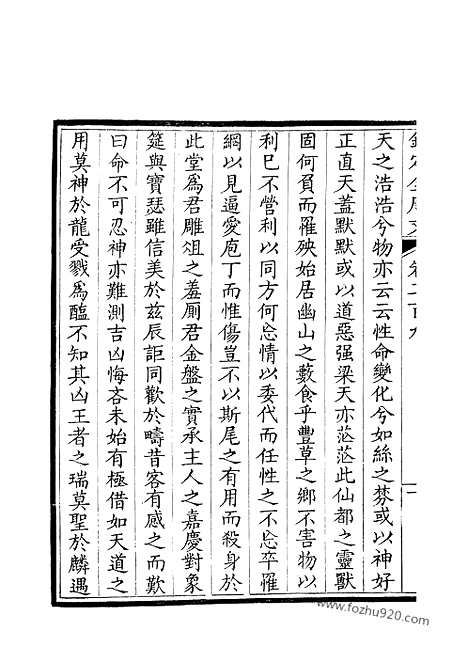 天之浩浩兮物亦云云性命變化兮如絲之棼或以神好
正直天蓋默默或以道惡强梁天亦茫茫此仙都之靈獸
固何負而罹殃始居幽山之藪食乎豐草之鄉不害物以
利己不營利以同方何忩情以委代而任性之不忩卒罹
網以見逼愛庖丁而惟傷豈不以斯尾之有用而殺身於
此堂為君雕俎之羞厠君金盤之實承主人之嘉慶對象
筵與寶瑟雖信美於兹辰詎同歡於疇昔客有感之而歎
曰命不可忍神亦難測吉凶悔吝未始有極借如天道之
用莫神於龍受戮為醢不知其凶王者之瑞莫聖於麟遇
www.fozhu920.com